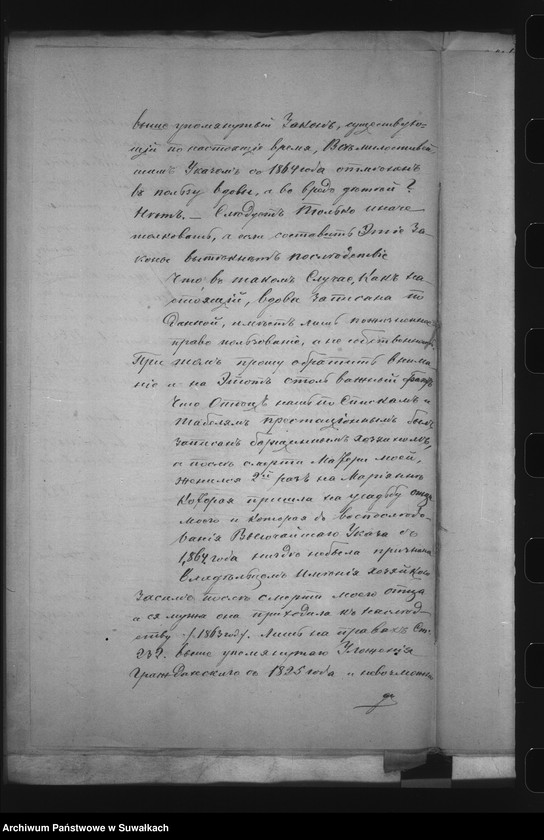 выше упомянутый Законъ, существую-
щій по настоящее время, Всемилостивѣй
шимъ Указомъ съ 1864 года отмененъ
въ пользу вдовы, а во вредъ дѣтей?
Нѣтъ. — Слѣдуетъ только иначе
толковать, а если составить Этіе За
коны вытекнетъ послѣдствіе
Что въ такомъ Случае, Какъ на
стоящій, вдова Записана по
Данной, имѣетъ лишь пожизненное
право пользованія, а не собственности.
При томъ прошу обратить внима
ніе и на Этотъ столь важный фактъ
Что Отецъ нашъ по Спискамъ и
Табелямъ престаціоннымъ былъ
Записанъ хозяиномъ,
а послѣ смерти Матери моей,
женился 2й разъ на Маріаннѣ
Которая пришла на усадьбу отца
моего и которая въ воспослѣдо-
ванія Высочайшаго Указа съ
1864 года не была признана
имѣнія хозяйкою
Засимъ послѣ смерти моего отца
а ея мужа она приходила къ наслѣд
ству /: 1863 году. Лишь на правахъ Ст.
232. выше упомянутаго Уложенія
Гражданскаго съ 1825 года и